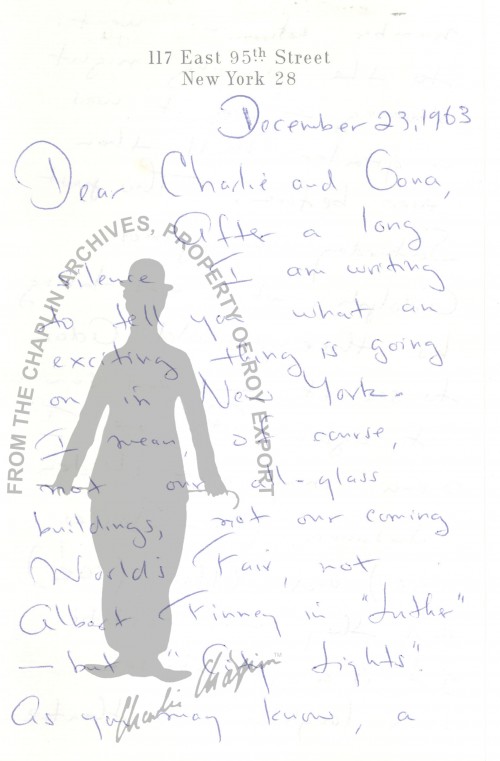 117 East 95th Street
New York 28
December 23, 1963
Dear Charlie and Oona,
After a long
silence I am writing
to tell you what an
exciting thing is going
on in New York.
I mean, of course,
not our all-glass
buildings, not our coming
World's Fair, not
Albert Finney in "Luther"
— but "City Lights".
As you may know, a
FROM THE CHAPLIN ARCHIVES, PROPERTY OF ROY EXPORT
Charlie Chaplin™